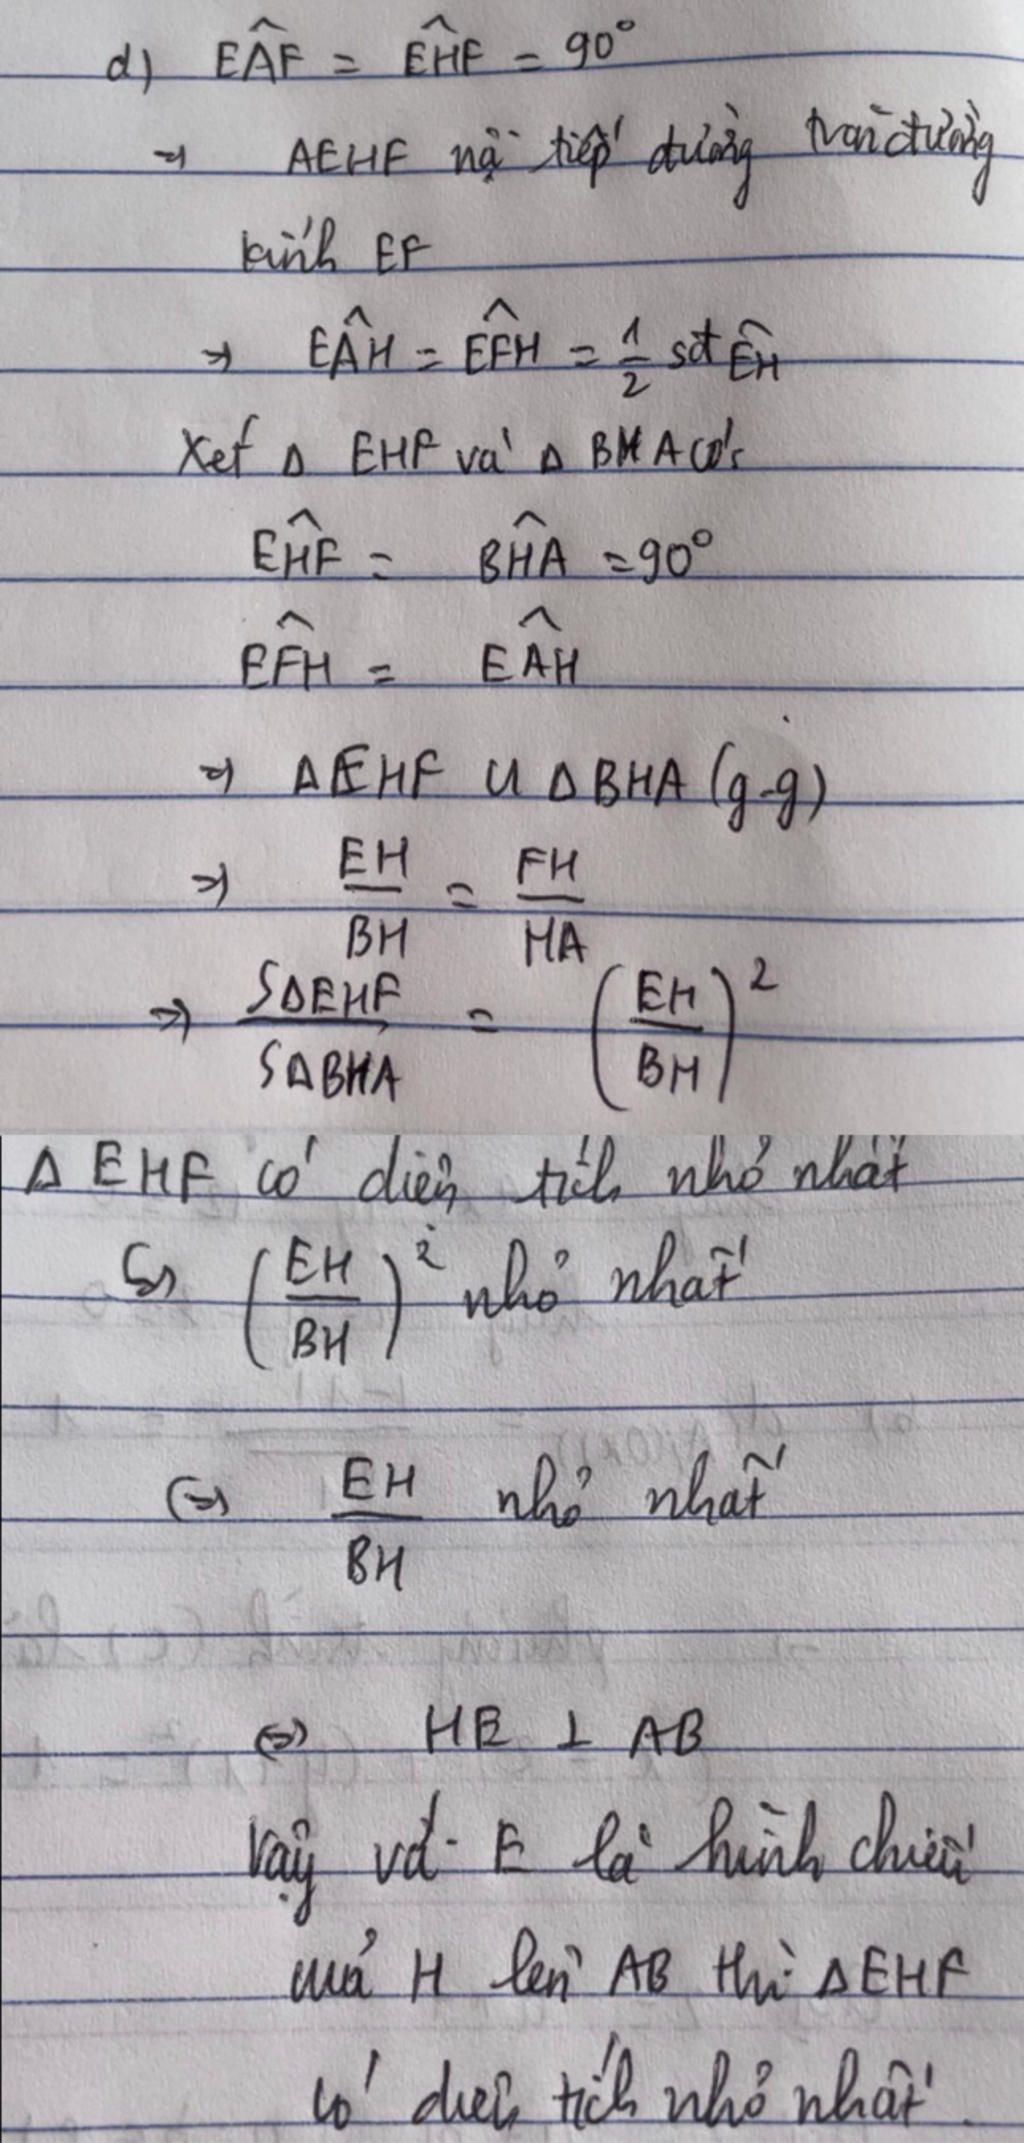 d) EÂF = EĤF = 90°
⇒ AEHF nội tiếp đường tròn đường
kính EF
⇒ EÂH = EF̂H = 1/2 sđ EH
Xét Δ EHF và Δ BHA có:
EĤF = BĤA = 90°
EF̂H = EÂH
⇒ ΔEHF ∽ ΔBHA (g-g)
⇒ EH/BH = FH/HA
⇒ SΔEHF/SΔBHA = (EH/BH)²
Δ EHF có diện tích nhỏ nhất
⇔ (EH/BH)² nhỏ nhất
⇔ EH/BH nhỏ nhất
⇔ HE ⊥ AB
Vậy với E là hình chiếu
của H lên AB thì ΔEHF
có diện tích nhỏ nhất.